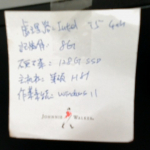 處理器：Intel i5 Gen
記憶体：8G
硬碟容量：128G SSD
主机板：華碩 H61
作業系統：Windows 11
Johnnie Walker